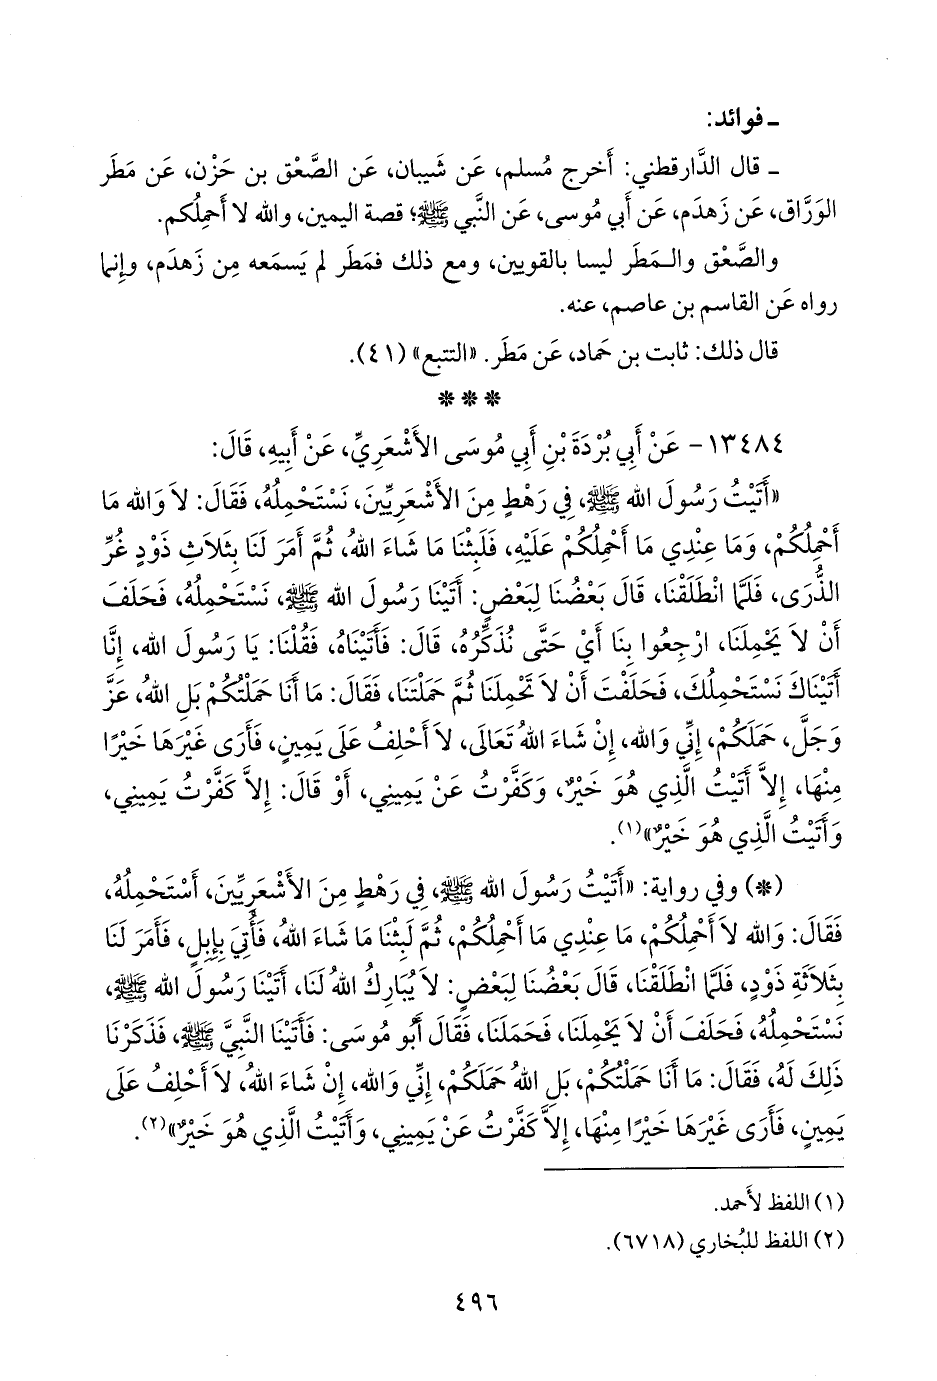 ـ فوائد:
ـ قال الدَّارقطني: أَخرج مُسلم، عَن شَيبان، عَن الصَّعْق بن حَزْن، عَن مَطَر
الوَرَّاق، عَن زَهدَم، عَن أَبي مُوسى، عَن النَّبي ﷺ؛ قصة اليمين، والله لا أَحملُكم.
والصَّعْق والـمَطَر ليسا بالقويين، ومع ذلك فمَطَر لم يَسمَعه مِن زَهدَم، وإِنما
رواه عَن القاسم بن عاصم، عنه.
قال ذلك: ثابت بن حَماد، عَن مَطَر. «التتبع» (٤١).
* * *
١٣٤٨٤- عَنْ أَبِي بُرْدَةَ بْنِ أَبِي مُوسَى الأَشْعَرِيِّ، عَنْ أَبِيهِ، قَالَ:
«أَتَيْتُ رَسُولَ الله ﷺ، فِي رَهْطٍ مِنَ الأَشْعَرِيِّينَ، نَسْتَحْمِلُهُ، فَقَالَ: لاَ وَالله مَا
أَحْمِلُكُمْ، وَمَا عِنْدِي مَا أَحْمِلُكُمْ عَلَيْهِ، فَلَبِثْنَا مَا شَاءَ اللهُ، ثُمَّ أَمَرَ لَنَا بِثَلاَثِ ذَوْدٍ غُرِّ
الذُّرَى، فَلَمَّا انْطَلَقْنَا، قَالَ بَعْضُنَا لِبَعْضٍ: أَتَيْنَا رَسُولَ الله ﷺ، نَسْتَحْمِلُهُ، فَحَلَفَ
أَنْ لاَ يَحْمِلَنَا، ارْجِعُوا بِنَا أَيْ حَتَّى نُذَكِّرُهُ، قَالَ: فَأَتَيْنَاهُ، فَقُلْنَا: يَا رَسُولَ الله، إِنَّا
أَتَيْنَاكَ نَسْتَحْمِلُكَ، فَحَلَفْتَ أَنْ لاَ تَحْمِلَنَا ثُمَّ حَمَلْتَنَا، فَقَالَ: مَا أَنَا حَمَلْتُكُمْ بَلِ اللهُ، عَزَّ
وَجَلَّ، حَمَلَكُمْ، إِنِّي وَالله، إِنْ شَاءَ اللهُ تَعَالَى، لاَ أَحْلِفُ عَلَى يَمِينٍ، فَأَرَى غَيْرَهَا خَيْرًا
مِنْهَا، إِلاَّ أَتَيْتُ الَّذِي هُوَ خَيْرٌ، وَكَفَّرْتُ عَنْ يَمِينِي، أَوْ قَالَ: إِلاَّ كَفَّرْتُ يَمِينِي،
وَأَتَيْتُ الَّذِي هُوَ خَيْرٌ»(١).
(*) وفي رواية: «أَتَيْتُ رَسُولَ الله ﷺ، فِي رَهْطٍ مِنَ الأَشْعَرِيِّينَ، أَسْتَحْمِلُهُ،
فَقَالَ: وَالله لاَ أَحْمِلُكُمْ، مَا عِنْدِي مَا أَحْمِلُكُمْ، ثُمَّ لَبِثْنَا مَا شَاءَ اللهُ، فَأُتِيَ بِإِبِلٍ، فَأَمَرَ لَنَا
بِثَلاَثَةِ ذَوْدٍ، فَلَمَّا انْطَلَقْنَا، قَالَ بَعْضُنَا لِبَعْضٍ: لاَ يُبَارِكُ اللهُ لَنَا، أَتَيْنَا رَسُولَ الله ﷺ،
نَسْتَحْمِلُهُ، فَحَلَفَ أَنْ لاَ يَحْمِلَنَا، فَحَمَلَنَا، فَقَالَ أَبُو مُوسَى: فَأَتَيْنَا النَّبِيَّ ﷺ، فَذَكَرْنَا
ذَلِكَ لَهُ، فَقَالَ: مَا أَنَا حَمَلْتُكُمْ، بَلِ اللهُ حَمَلَكُمْ، إِنِّي وَالله، إِنْ شَاءَ اللهُ، لاَ أَحْلِفُ عَلَى
يَمِينٍ، فَأَرَى غَيْرَهَا خَيْرًا مِنْهَا، إِلاَّ كَفَّرْتُ عَنْ يَمِينِي، وَأَتَيْتُ الَّذِي هُوَ خَيْرٌ»(٢).
(١) اللفظ لأَحمد.
(٢) اللفظ للبُخاري (٦٧١٨).
٤٩٦